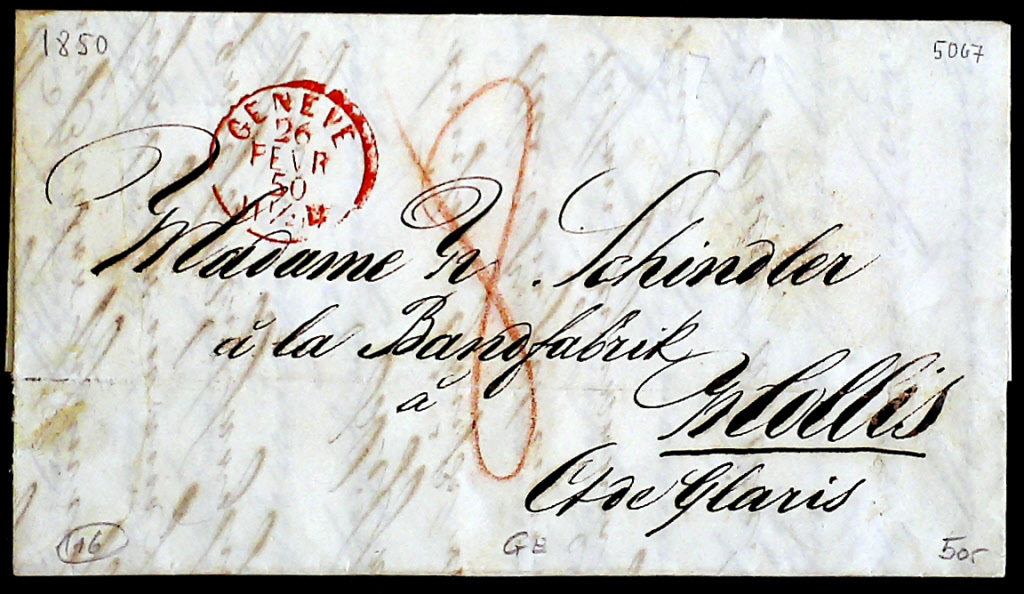 1850
5067
GENEVE
26
FEVR
50
Madame N. Schindler
8
à la Bandfabrik
à Mollis
Ct de Glaris
GE
50.-